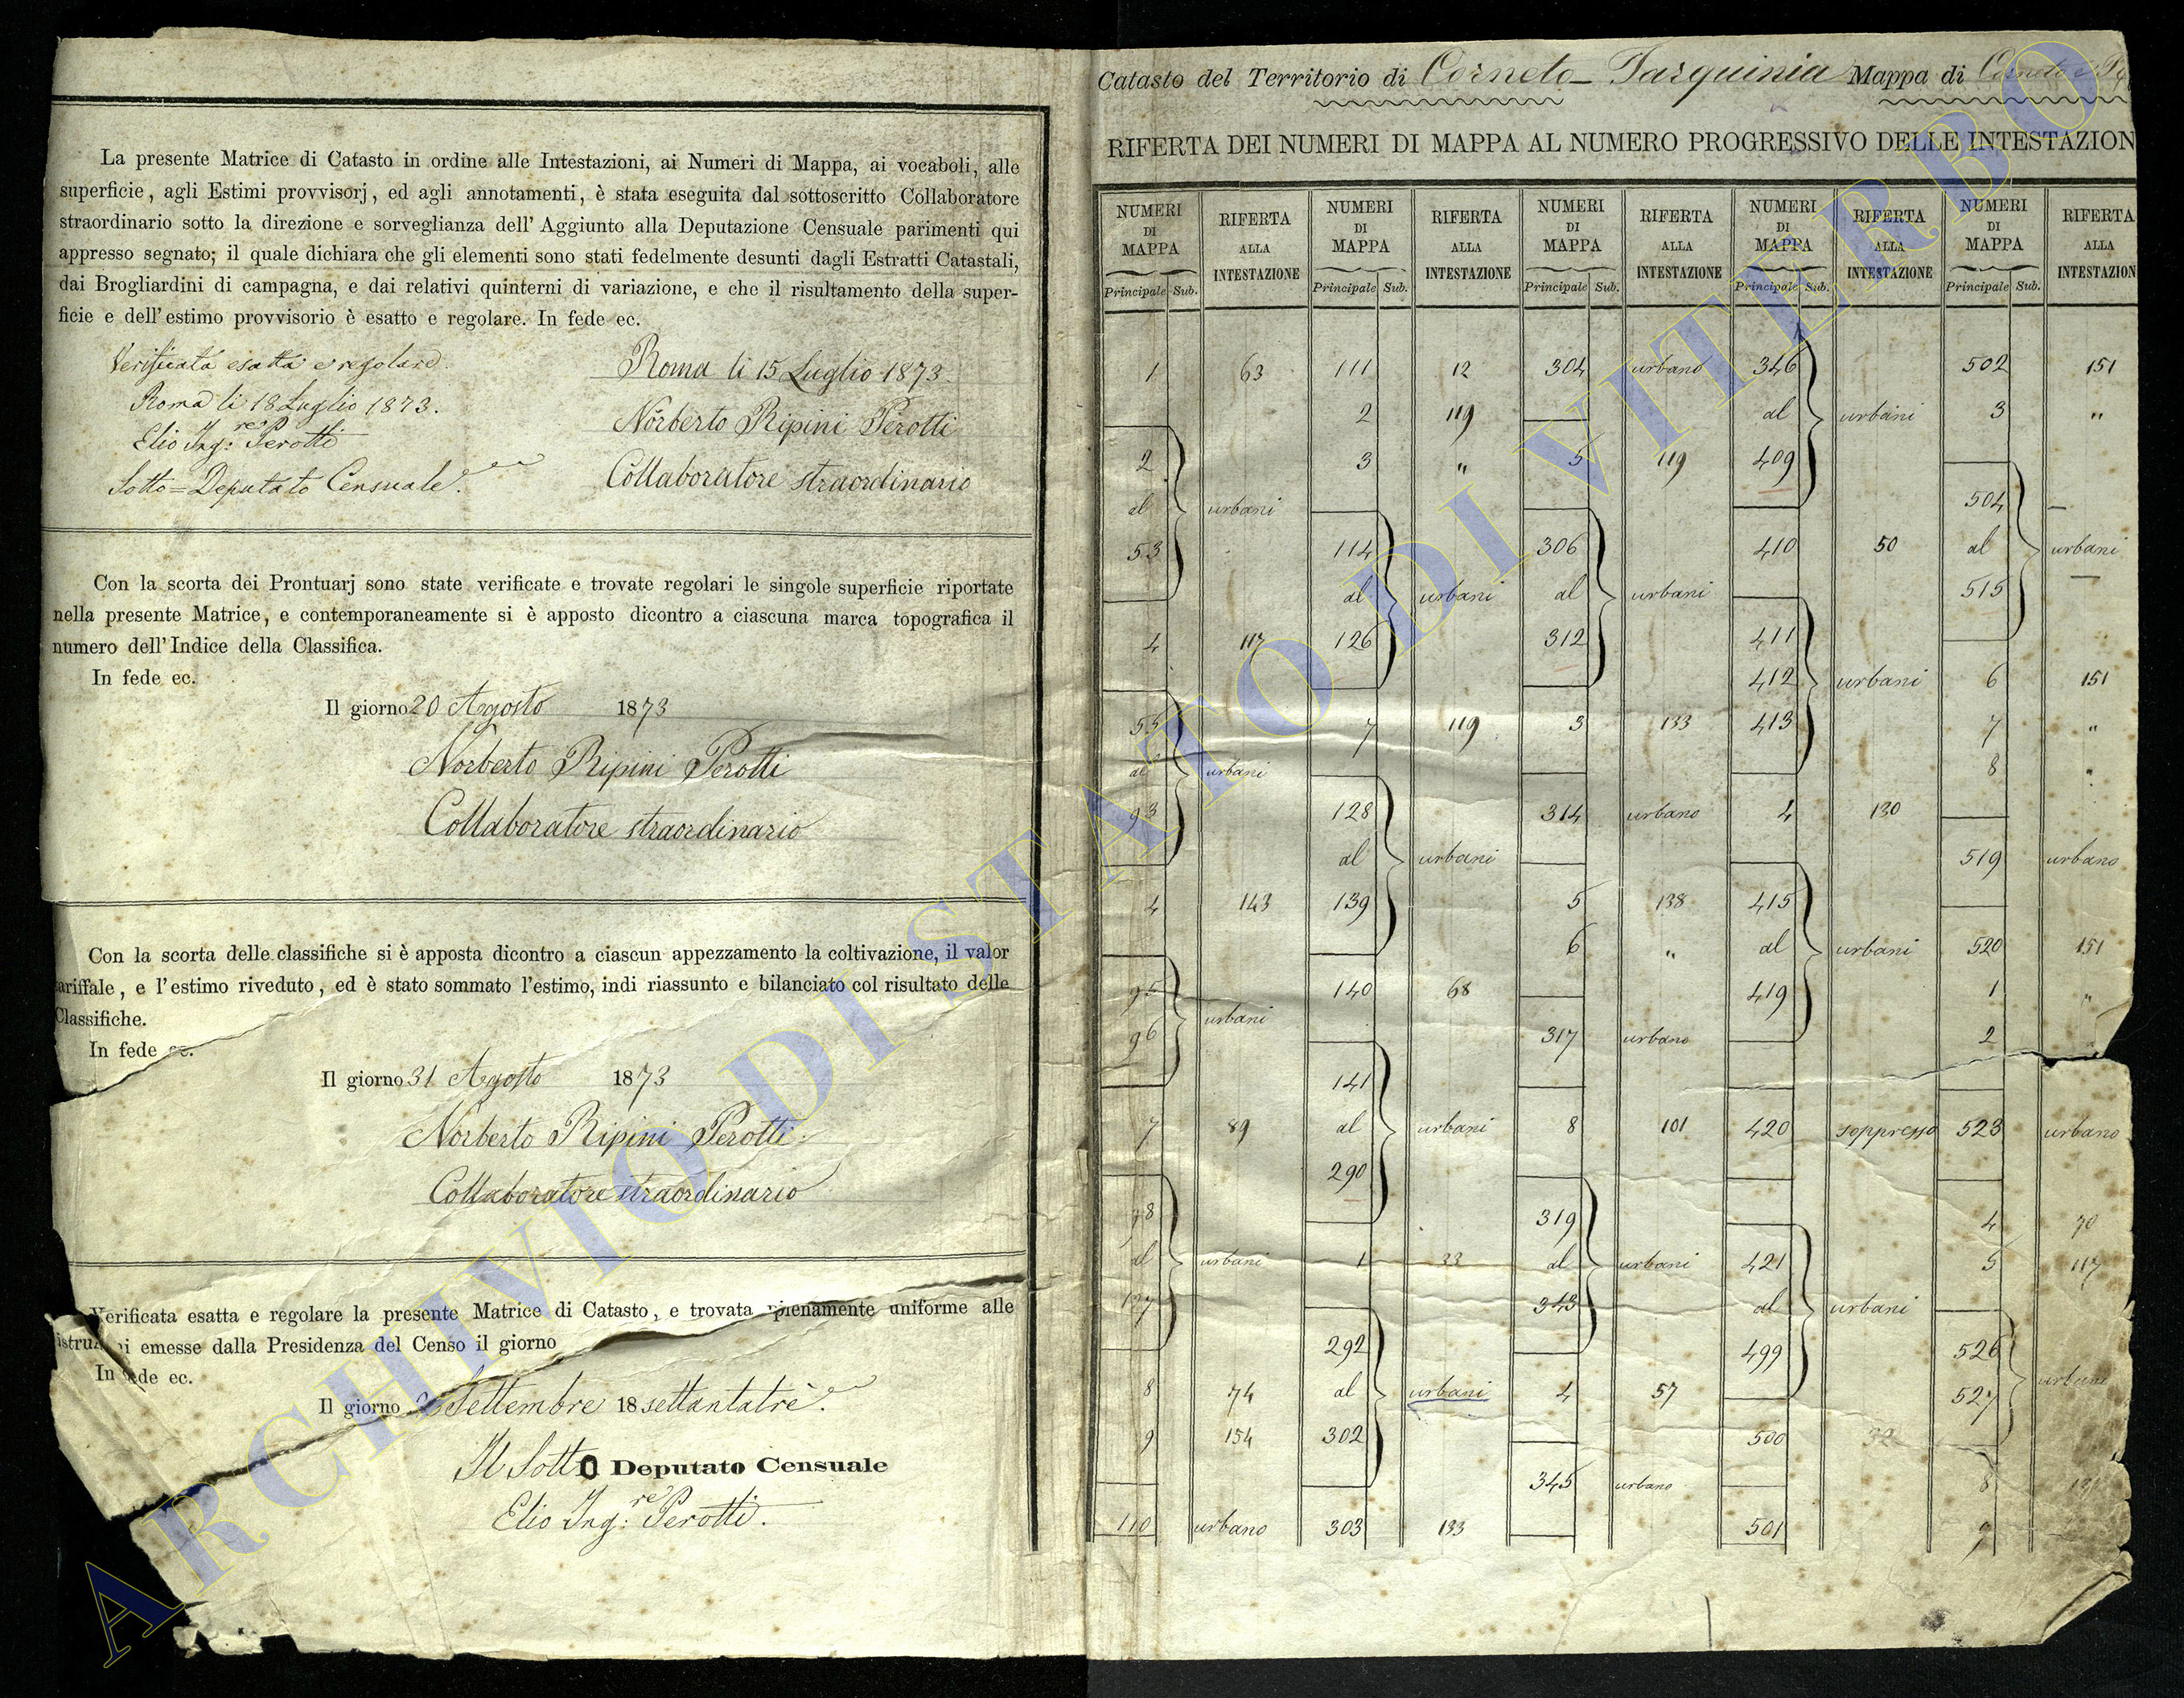 La presente Matrice di Catasto in ordine alle Intestazioni, ai Numeri di Mappa, ai vocaboli, alle
superficie, agli Estimi provvisorj, ed agli annotamenti, è stata eseguita dal sottoscritto Collaboratore
straordinario sotto la direzione e sorveglianza dell' Aggiunto alla Deputazione Censuale parimenti qui
appresso segnato; il quale dichiara che gli elementi sono stati fedelmente desunti dagli Estratti Catastali,
dai Brogliardini di campagna, e dai relativi quinterni di variazione, e che il risultamento della super-
ficie e dell'estimo provvisorio è esatto e regolare. In fede ec.
Verificata esatta e regolare.
Roma li 18 Luglio 1873.
Elio Ing:re Perotti
Sotto=Deputato Censuale.
Roma li 15 Luglio 1873.
Norberto Ripini Perotti
Collaboratore straordinario
Con la scorta dei Prontuarj sono state verificate e trovate regolari le singole superficie riportate
nella presente Matrice, e contemporaneamente si è apposto dicontro a ciascuna marca topografica il
numero dell'Indice della Classifica.
In fede ec.
Il giorno 20 Agosto 1873
Norberto Ripini Perotti
Collaboratore straordinario
Con la scorta delle classifiche si è apposta dicontro a ciascun appezzamento la coltivazione, il valor
ariffale, e l'estimo riveduto, ed è stato sommato l'estimo, indi riassunto e bilanciato col risultato delle
Classifiche.
In fede ec.
Il giorno 31 Agosto 1873
Norberto Ripini Perotti.
Collaboratore straordinario
Verificata esatta e regolare la presente Matrice di Catasto, e trovata pienamente uniforme alle
emesse dalla Presidenza del Censo il giorno
In fede ec.
Il giorno Settembre 18settantatrè.
Il Sotto Deputato Censuale
Elio Ing:re Perotti.
Catasto del Territorio di Corneto-Tarquinia Mappa di Corneto
RIFERTA DEI NUMERI DI MAPPA AL NUMERO PROGRESSIVO DELLE INTESTAZION
NUMERI DI MAPPA Principale Sub. RIFERTA ALLA INTESTAZIONE
1 63
2 al 53 urbani
4 117
55 al 93 urbani
4 143
95 96 urbani
7 89
98 al 107 urbani
8 74
9 154
110 urbano
NUMERI DI MAPPA Principale Sub. RIFERTA ALLA INTESTAZIONE
111 12
2 119
3 "
114 al 126 urbani
7 119
128 al 139 urbani
140 68
141 al 290 urbani
1 33
292 al 302 urbani
303 133
NUMERI DI MAPPA Principale Sub. RIFERTA ALLA INTESTAZIONE
304 urbano
5 119
306 al 312 urbani
3 133
314 urbano
5 138
6 "
317 urbano
8 101
319 al 343 urbani
4 57
345 urbano
NUMERI DI MAPPA Principale Sub. RIFERTA ALLA INTESTAZIONE
346 al 409 urbani
410 50
411 412 413 urbani
4 130
415 al 419 urbani
420 soppresso
421 al 499 urbani
500 32
501
NUMERI DI MAPPA Principale Sub. RIFERTA ALLA INTESTAZION
502 151
3 "
504 al 515 urbani
6 151
7 "
8 "
519 urbano
520 151
1 "
2
523 urbano
4 70
5 117
526 527 urbani
8
9
ARCHIVIO DI STATO DI VITERBO